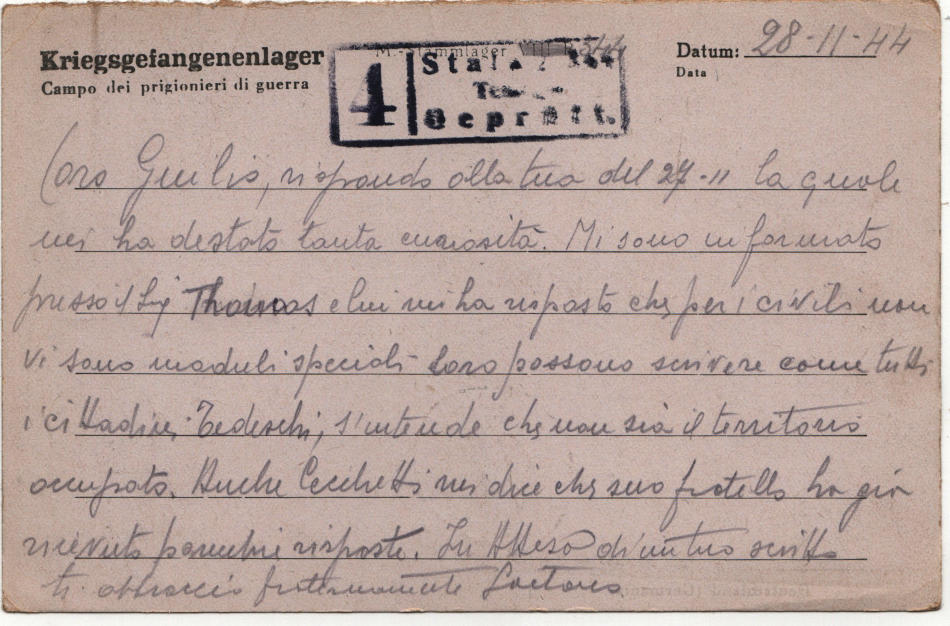 Kriegsgefangenenlager
Campo dei prigionieri di guerra
M.-Stammlager VIII 344
Datum: 28-11-44
Data
4
Stalag
Geprüft.
Caro Giulio, rispondo alla tua del 27-11 la quale
mi ha destato tanta curiosità. Mi sono informato
presso il Sig Thomas e lui mi ha risposto che per i civili non
vi sono moduli speciali loro possono scrivere come tutti
i cittadini Tedeschi, s'intende che non sia il territorio
occupato. Anche Cecchetti mi dice che suo fratello ha già
ricevuto parecchie risposte. In Attesa di un tuo scritto
ti abbraccio fraternamente Gaetano